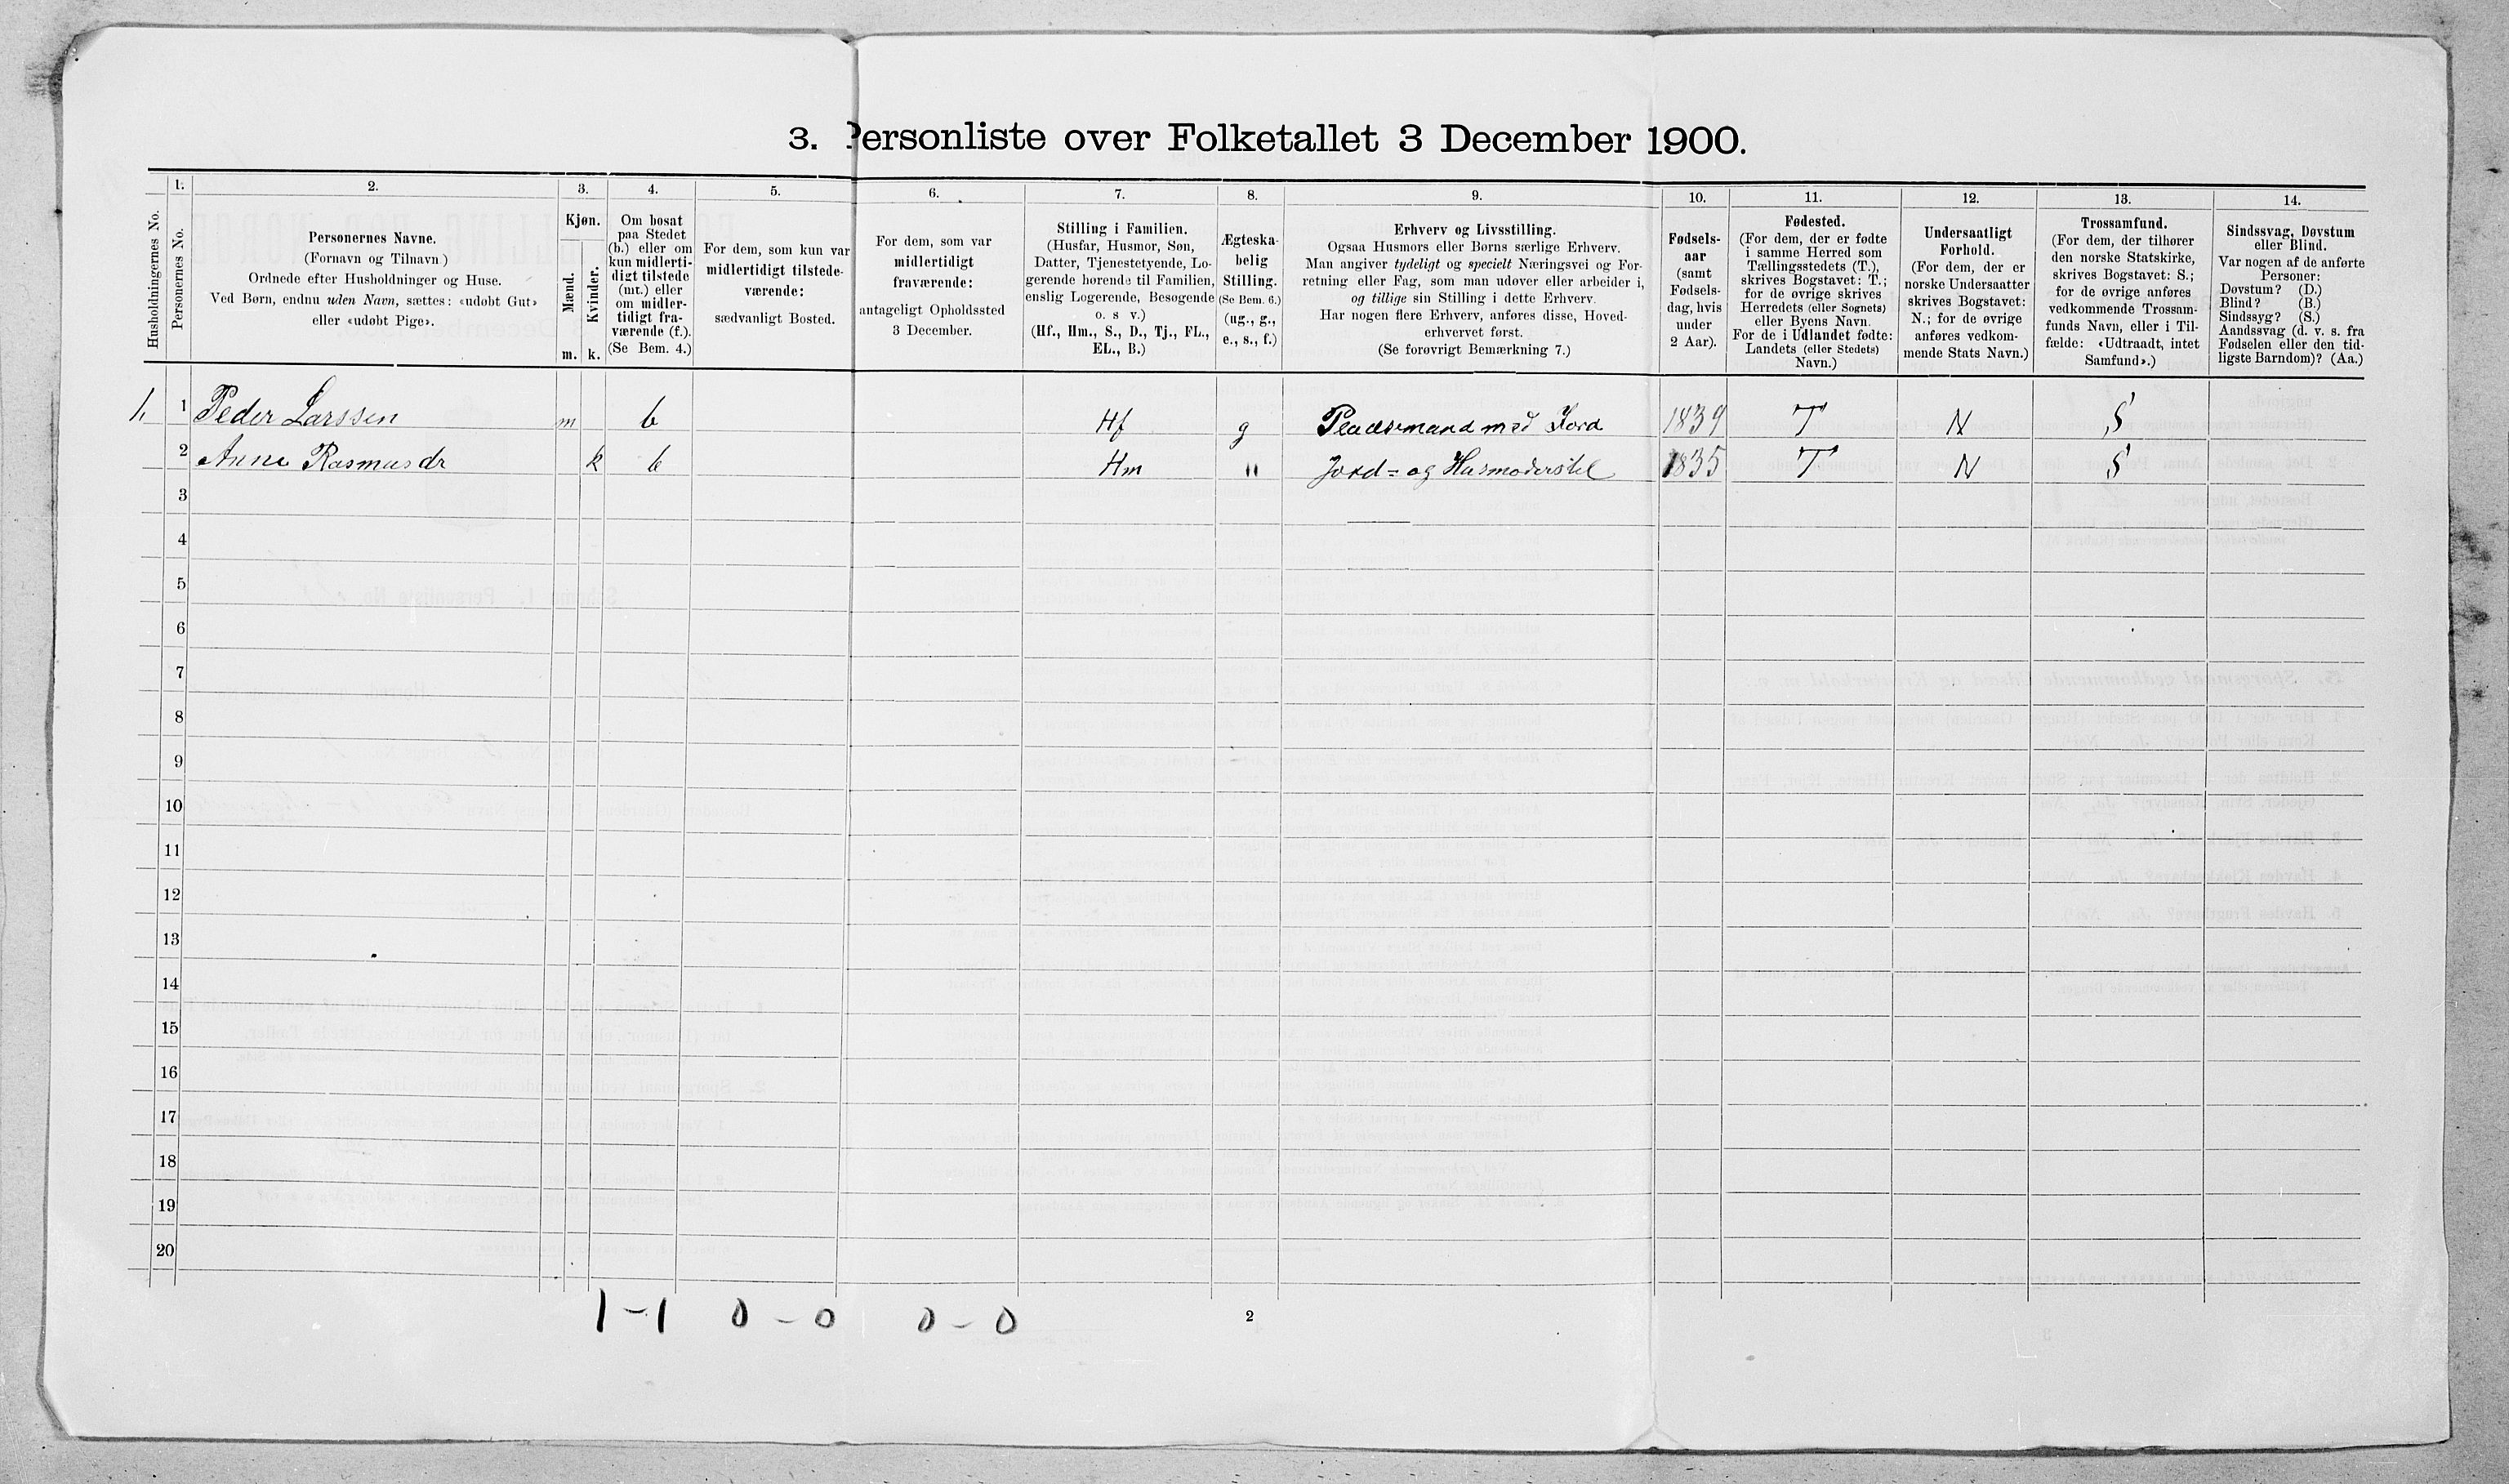 3. Personliste over Folketallet 3 December 1900.
1. 2. 3. 4. 5. 6. 7. 8. 9. 10. 11. 12. 13. 14.
Husholdningernes No.
Personernes No.
Personernes Navne.
(Fornavn og Tilnavn )
Ordnede efter Husholdninger og Huse.
Ved Børn, endnu uden Navn, sættes: «udøbt Gut»
eller «udøbt Pige».
Kjøn.
Mænd.
Kvinder.
m. k.
Om bosat
paa Stedet
(b.) eller om
kun midlerti-
digt tilstede
(mt.) eller
om midler-
tidigt fra-
værende (f.).
(Se Bem. 4.)
For dem, som kun var
midlertidigt tilstede-
værende:
sædvanligt Bosted.
For dem, som var
midlertidigt
fraværende:
antageligt Opholdssted
3 December.
Stilling i Familien.
(Husfar, Husmor, Søn,
Datter, Tjenestetyende, Lo-
gerende hørende til Familien,
enslig Logerende, Besøgende
o. s v.)
(Hf., Hm., S., D., Tj., FL.,
EL., B.)
Ægteska-
belig
Stilling.
(Se Bem. 6.)
(ug., g.,
e., s., f.)
Erhverv og Livsstilling.
Ogsaa Husmors eller Børns særlige Erhverv.
Man angiver tydeligt og specielt Næringsvei og For-
retning eller Fag, som man udøver eller arbeider i,
og tillige sin Stilling i dette Erhverv.
Har nogen flere Erhverv, anføres disse, Hoved-
erhvervet først.
(Se forøvrigt Bemærkning 7.)
Fødsels-
aar
(samt
Fødsels-
dag, hvis
under
2 Aar).
Fødested.
(For dem, der er fødte
i samme Herred som
Tællingsstedets (T.),
skrives Bogstavet: T.;
for de øvrige skrives
Herredets (eller Sognets)
eller Byens Navn.
For de i Udlandet fødte:
Landets (eller Stedets)
Navn.)
Undersaatligt
Forhold.
(For dem, der er
norske Undersaatter
skrives Bogstavet:
N.; for de øvrige
anføres vedkom-
mende Stats Navn.)
Trossamfund.
(For dem, der tilhører
den norske Statskirke,
skrives Bogstavet: S.;
for de øvrige anføres
vedkommende Trossam-
funds Navn, eller i Til-
fælde: «Udtraadt, intet
Samfund».)
Sindssvag, Døvstum
eller Blind.
Var nogen af de anførte
Personer:
Døvstum? (D.)
Blind? (B.)
Sindssyg? (S.)
Aandssvag (d. v. s. fra
Fødselen eller den tid-
ligste Barndom)? (Aa.)
1. 1 Peder Larssen m b Hf g Pladsemand med Jord 1839 T N S
2 Anne Rasmusdr k b Hm " Jord= og Husmoderstel 1835 T N S
3
4
5
6
7
8
9
10
11
12
13
14
15
16
17
18
19
20
1 – 1 0 – 0 0 – 0
2